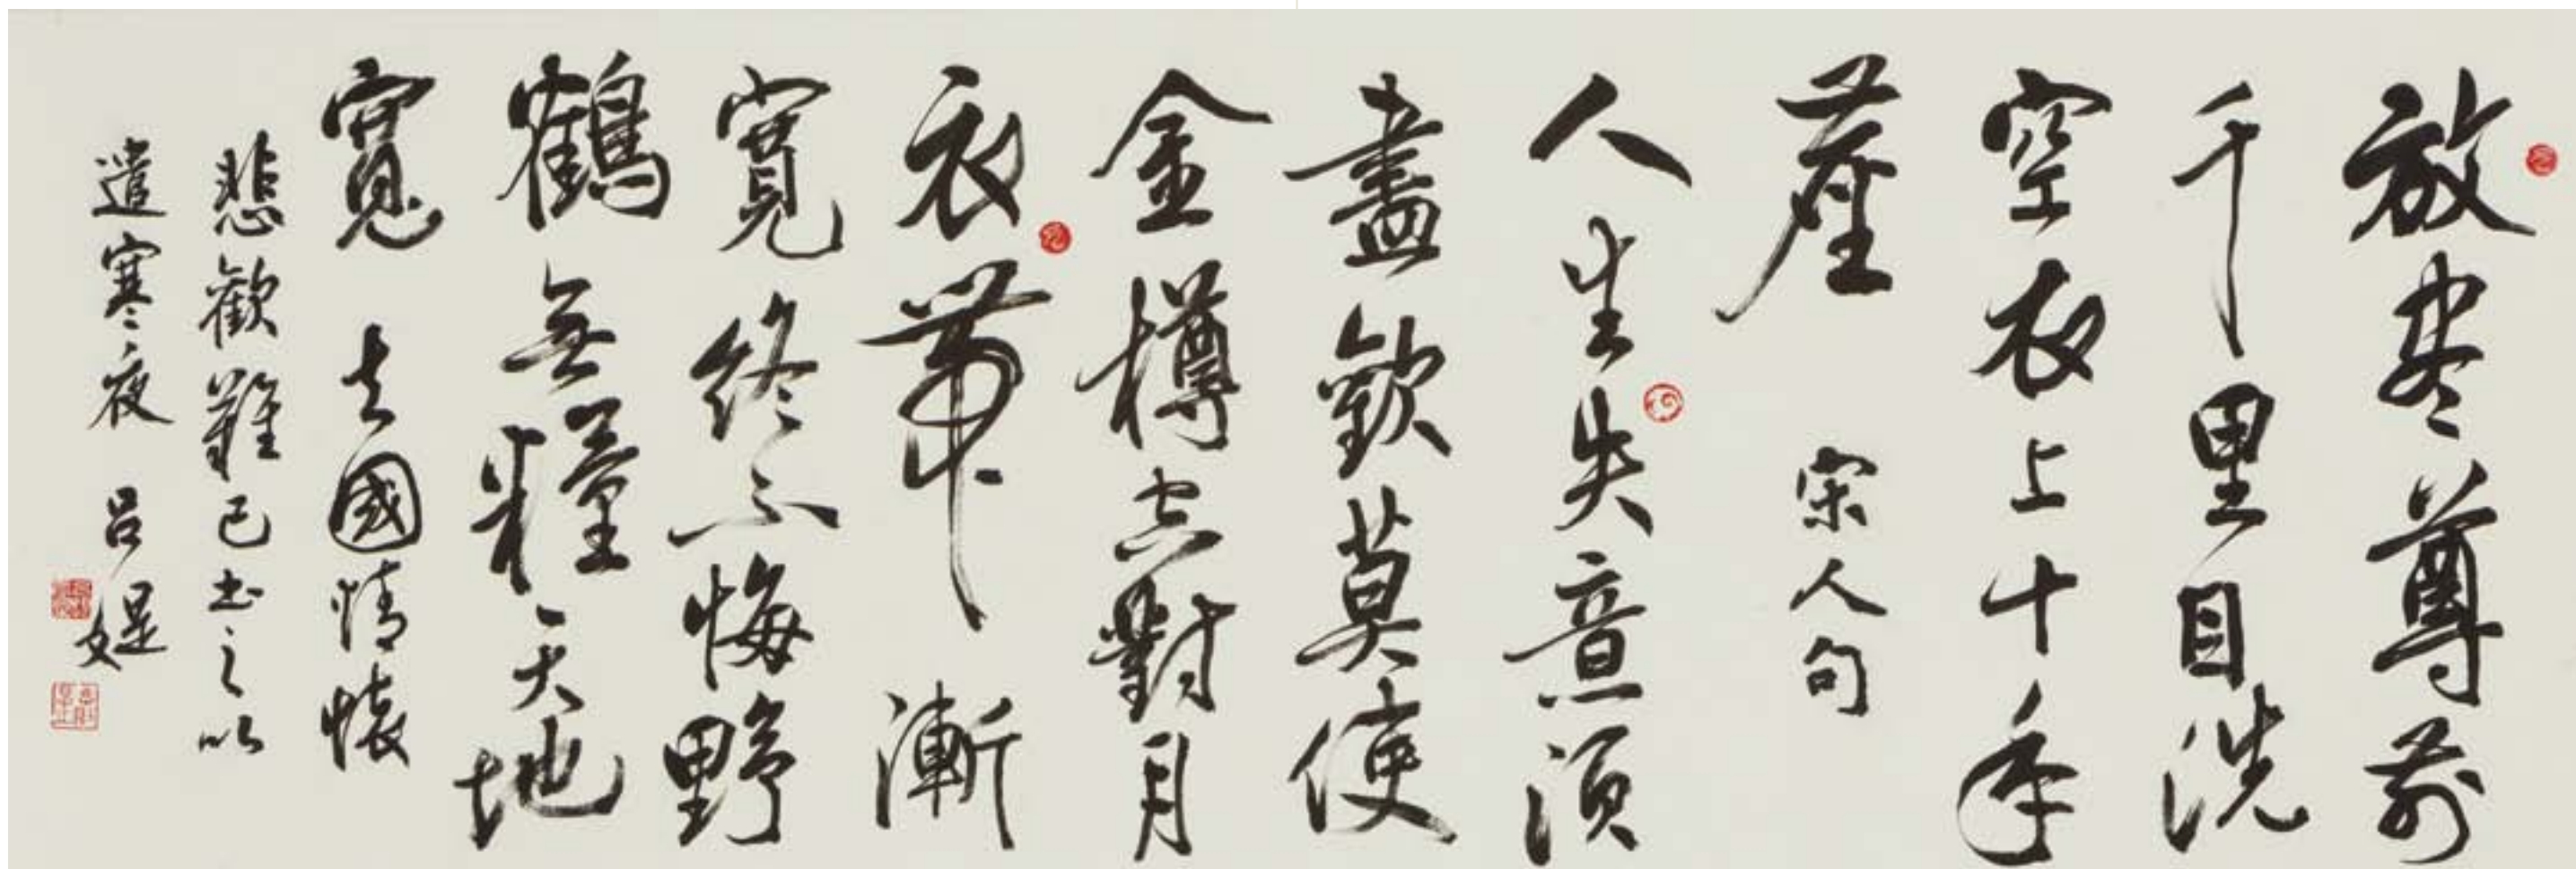 放尽尊前
千里目洗
空衣上十年
塵 宋人句
人生失意須
盡歡莫使
金樽空對月
衣帶漸
寬終不悔野
鶴無糧天地
寬 去國情懷
悲歡難已書之以
遣寒夜 吕媞